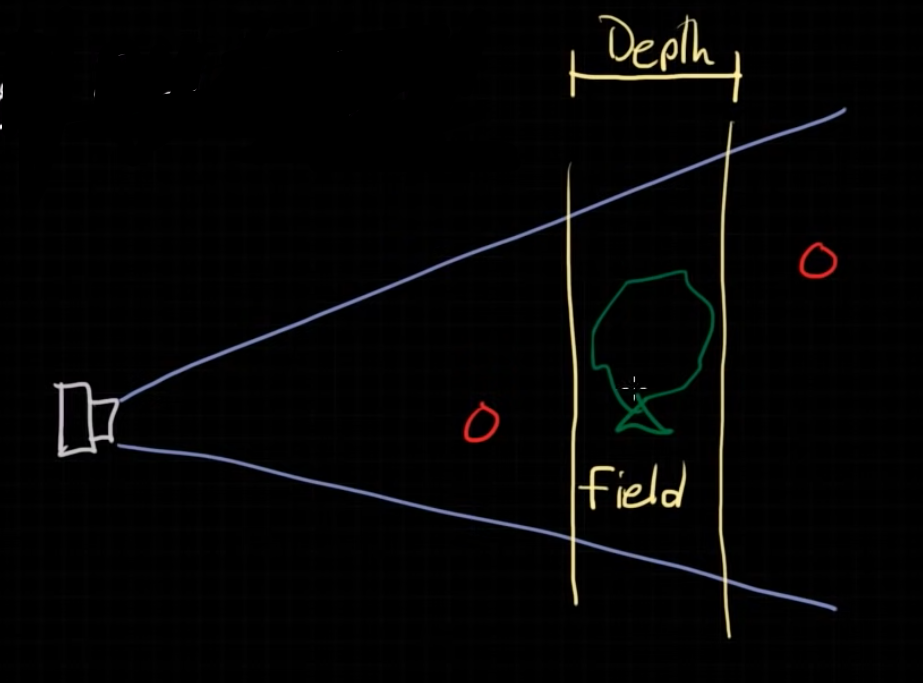 Depth
field